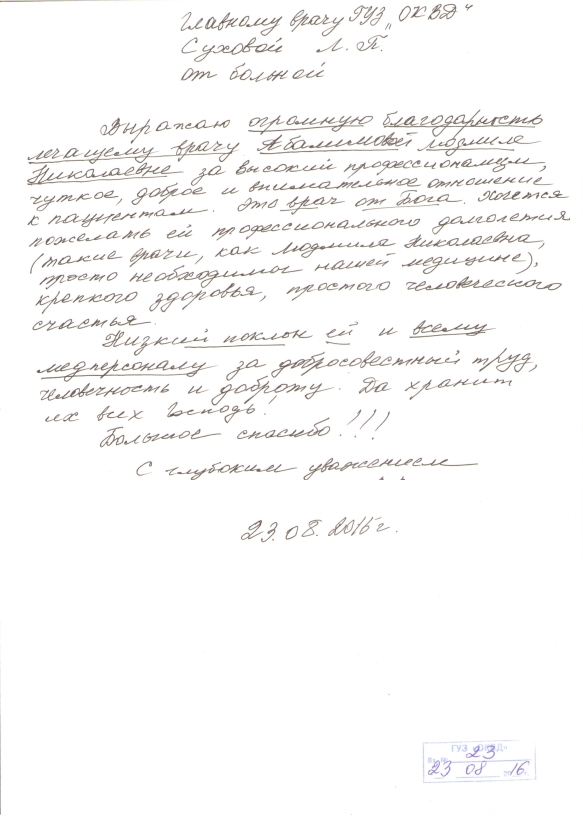 Главному врачу ГУЗ „ОКВД“
Суховой Л. П.
от больной
Выражаю огромную благодарность
лечащему врачу Абалимовой Людмиле
Николаевне за высокий профессионализм,
чуткое, доброе и внимательное отношение
к пациентам. Это врач от Бога. Хочется
пожелать ей профессионального долголетия
(такие врачи, как Людмила Николаевна,
просто необходимы нашей медицине),
крепкого здоровья, простого человеческого
счастья.
Низкий поклон ей и всему
медперсоналу за добросовестный труд,
человечность и доброту. Да хранит
их всех Господь!
Большое спасибо!!!
С глубоким уважением
23.08.2016г.
ГУЗ «ОКВД»
Вх. № 23
23 08 2016г.